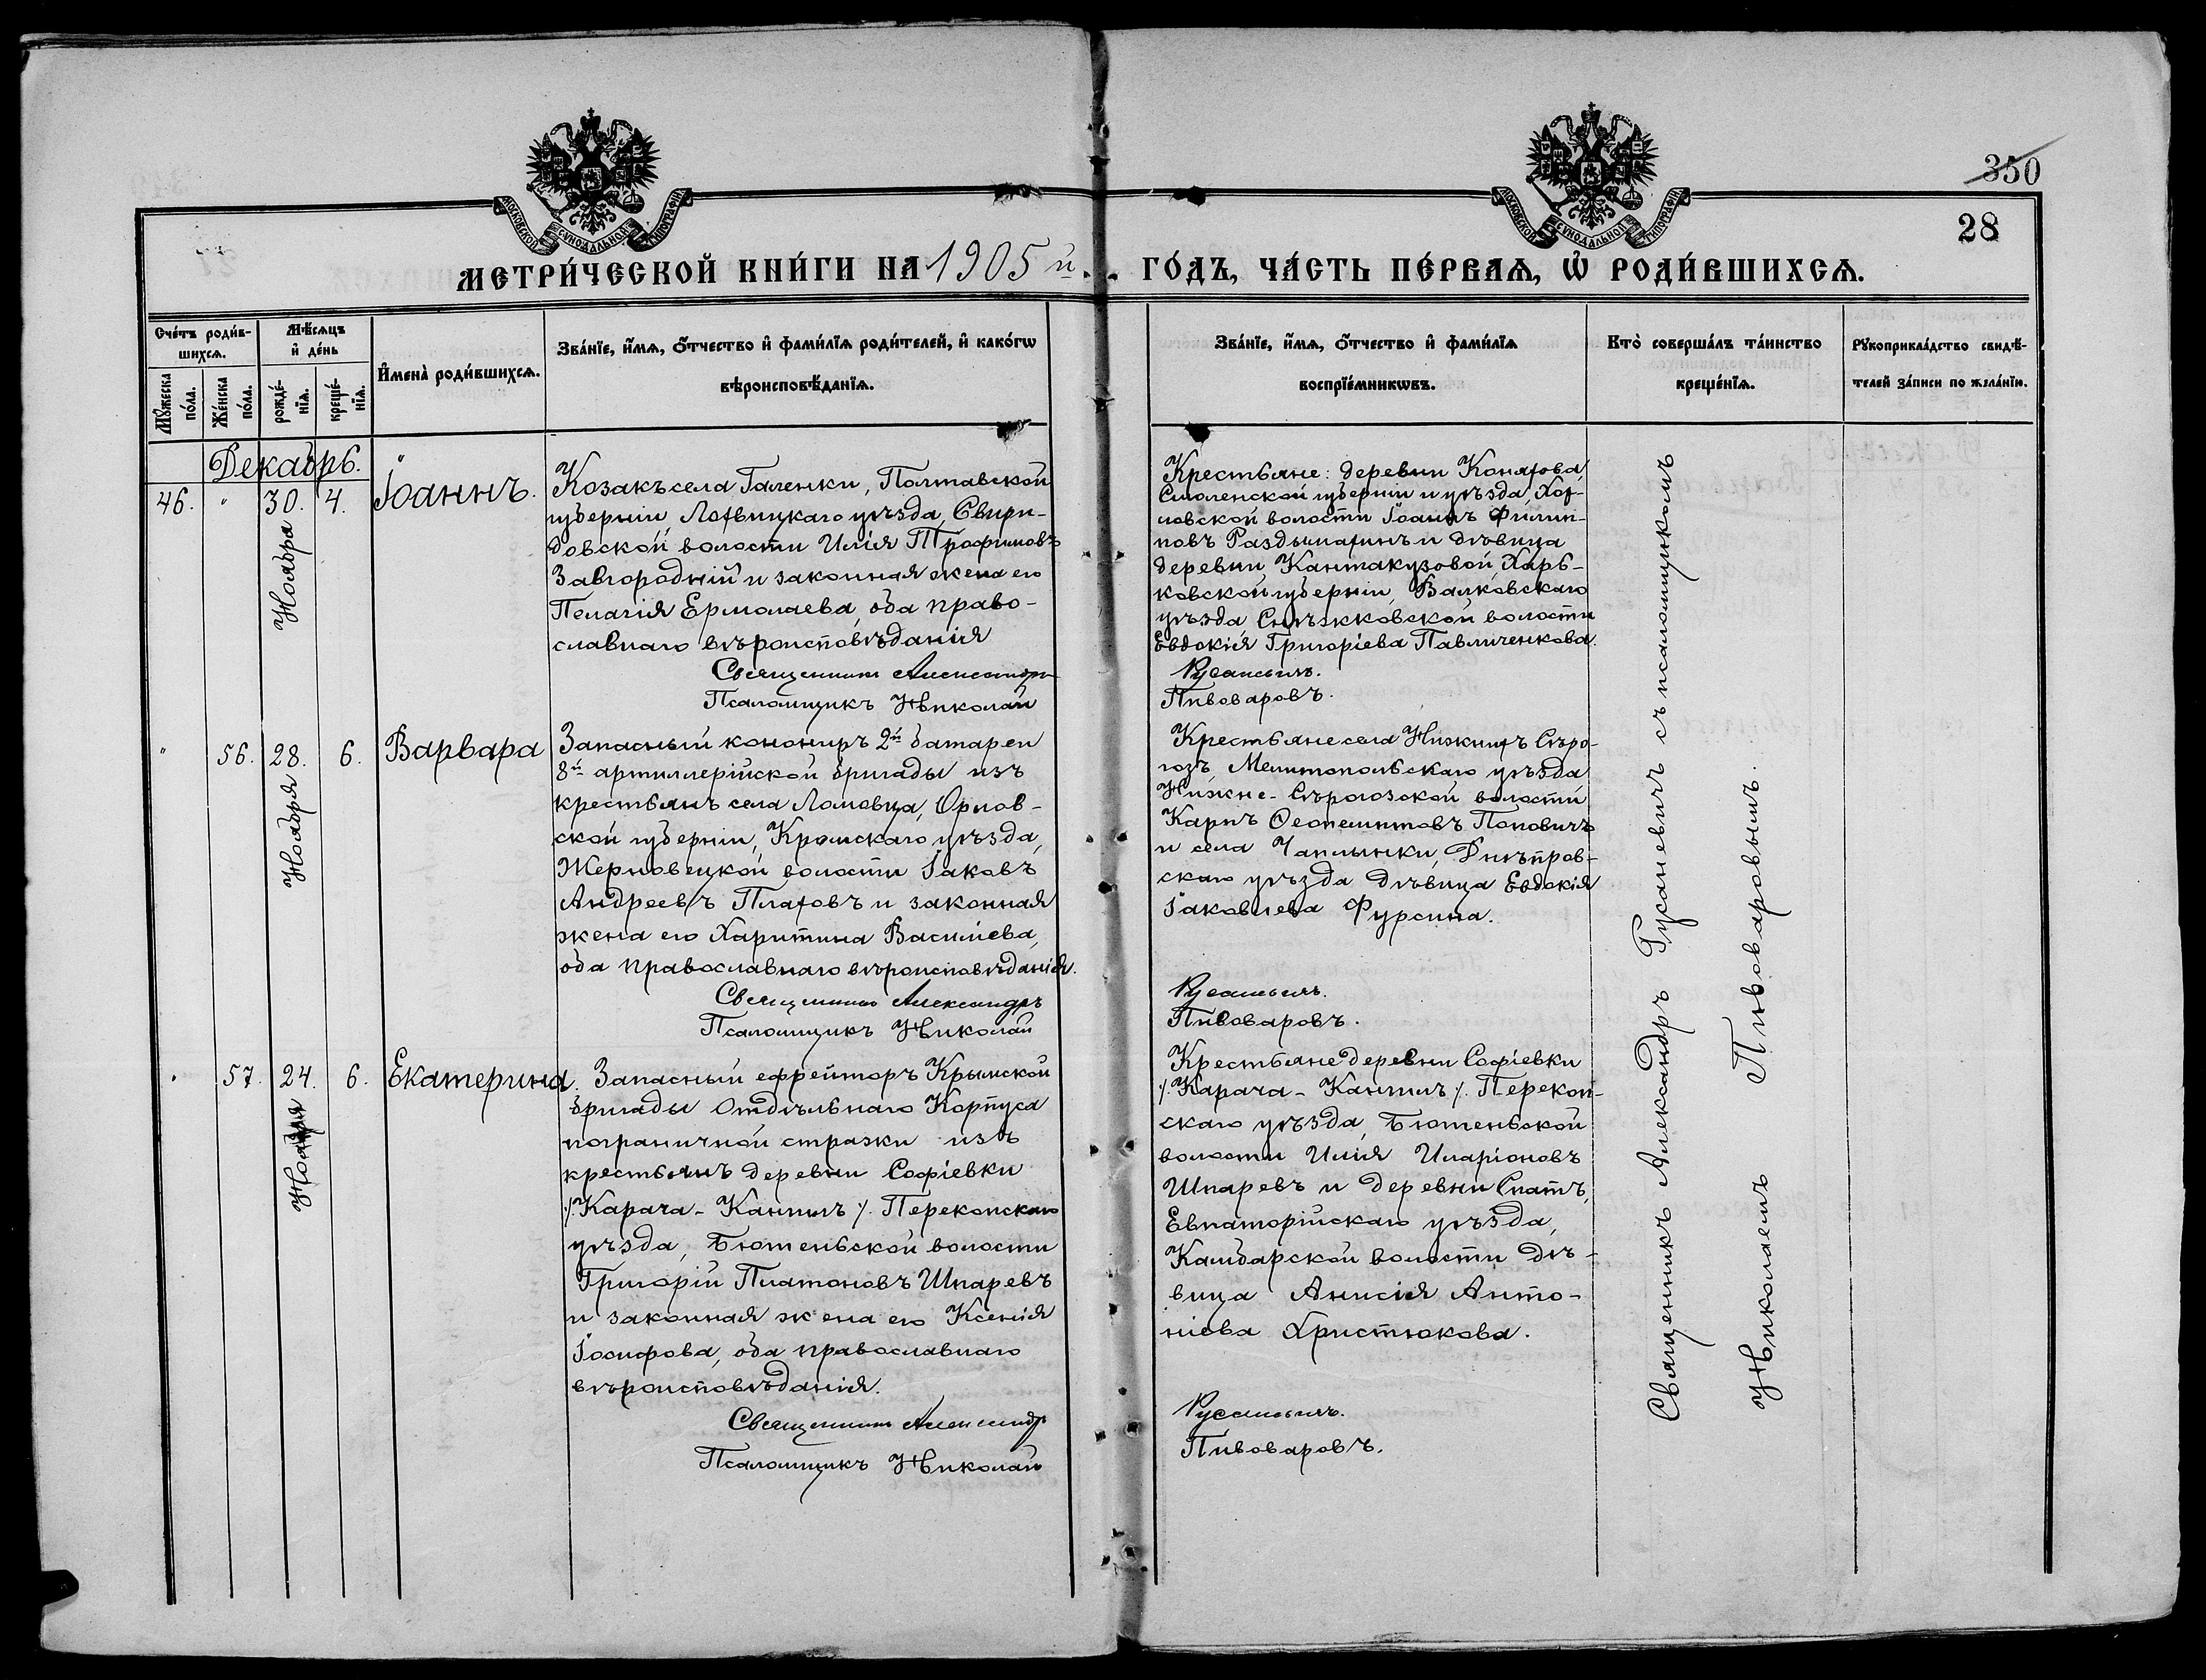 350
28
МОСКОВСКОЙ СѴНОДАЛЬНОЙ ТИПОГРАФІИ
МОСКОВСКОЙ СѴНОДАЛЬНОЙ ТИПОГРАФІИ
МЕТРИ́ЧЕСКОЙ КНИ́ГИ НА 1905й. ГО́ДЪ, ЧА́СТЬ ПЕ́РВАѦ, Ѽ РОДИ́ВШИХСѦ.
Сче́тъ роди́в-
шихсѧ.
Мꙋ́жеска по́ла.
Же́нска по́ла.
Мѣ́сѧцъ
и҆ де́нь
рожде́-
нїѧ.
креще́-
нїѧ.
И҆мена̀ роди́вшихсѧ.
Зва́нїе, и҆́мѧ, ѻ҆́тчество и҆ фами́лїѧ роди́телей, и҆ како́гѡ
вѣроисповѣ́данїѧ.
Зва́нїе, и҆́мѧ, ѻ҆́тчество и҆ фами́лїѧ
воспрїе́мникѡвъ.
Кто̀ соверша́лъ та́инство
креще́нїѧ.
Рꙋкоприкла́дство свидѣ́-
телей за́писи по жела́нїю.
Декабрь.
46. " 30. 4. Іоаннъ.
Ноября
Козакъ села Галенки, Полтавской
губерніи, Лохвицкаго уѣзда, Свири-
довской волости Илія Трофимовъ
Завгородній и законная жена его
Пелагія Ермолаева, оба право-
славнаго вѣроисповѣданія
Священникъ Александръ
Псаломщикъ Николай
Крестьяне: деревни Конахова,
Смоленской губерніи и уѣзда, Хох-
ловской волости Іоаннъ Филип-
повъ Раздымахинъ и дѣвица
деревни Кантакузовой, Харь-
ковской губерніи, Валковскаго
уѣзда Снѣжковской волости
Евдокія Григоріева Павличенкова.
Русаневичъ.
Пивоваровъ.
" 56. 28. 6. Варвара
Ноября
Запасный конониръ 2й батареи
8й артиллерійской бригады изъ
крестьянъ села Ломовца, Орлов-
ской губерніи, Кромскаго уѣзда,
Жерновецкой волости Іаковъ
Андреевъ Плаховъ и законная
жена его Харитина Василіева,
оба православнаго вѣроисповѣданія.
Священникъ Александръ
Псаломщикъ Николай
Крестьяне села Нижнихъ Сѣро-
гозъ, Мелитопольскаго уѣзда
Нижне-Сѣрогозской волости
Карпъ Ѳеопемптовъ Поповичъ
и села Чаплынки, Днѣпров-
скаго уѣзда дѣвица Евдокія
Іаковлева Фурсина.
Русаневичъ.
Пивоваровъ.
" 57. 24. 6. Екатерина.
Ноября
Запасный ефрейторъ Крымской
бригады Отдѣльнаго Корпуса
пограничной стражи изъ
крестьянъ деревни Софіевки
/.Карача-Канпилъ/. Перекопскаго
уѣзда, Бютеньской волости
Григорій Платоновъ Шпаревъ
и законная жена его Ксенія
Іосифова, оба православнаго
вѣроисповѣданія.
Священникъ Александръ
Псаломщикъ Николай
Крестьяне деревни Софіевки
/.Карача-Канпилъ/. Перекоп-
скаго уѣзда, Бютеньской
волости Илія Иларіоновъ
Шпаревъ и деревни Спатъ,
Евпаторійскаго уѣзда,
Камбарской волости дѣ-
вица Анисія Анто-
ніева Христюкова.
Русаневичъ.
Пивоваровъ.
Священникъ Александръ Русаневичъ съ псаломщикомъ
Николаемъ Пивоваровымъ.